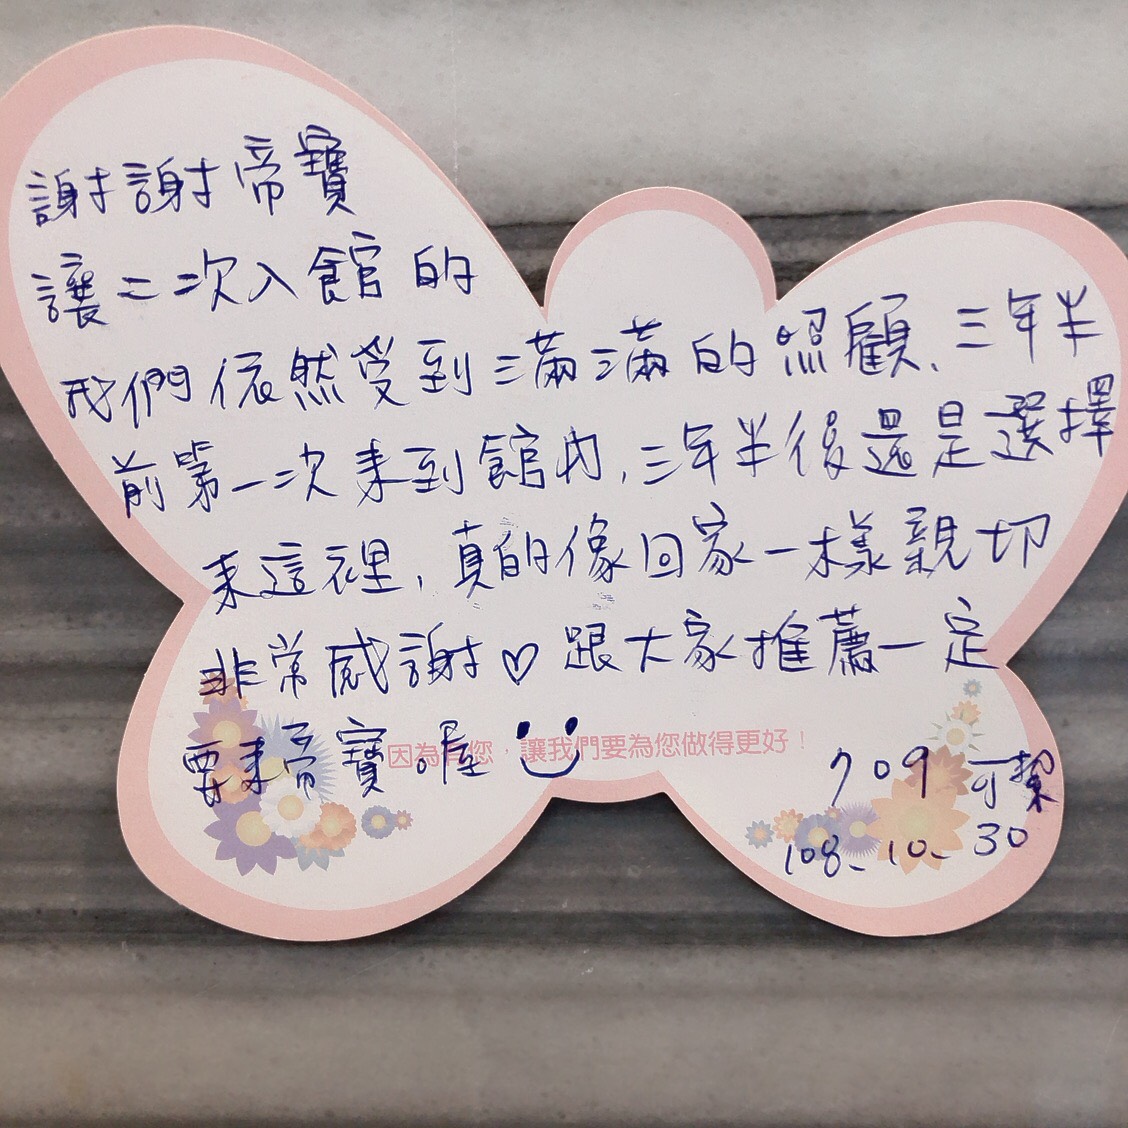 謝謝帝寶
讓二次入館的
我們依然受到滿滿的照顧、三年半
前第一次來到館內,三年半後還是選擇
來這裡,真的像回家一樣親切
非常感謝♡跟大家推薦一定
要來帝寶喔
因為有您,讓我們要為您做得更好!
709 可
108.10.30